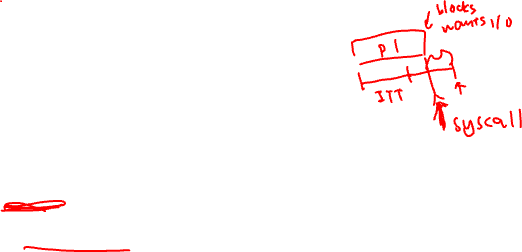 blocks
wants I/O
P1
ITT
syscall